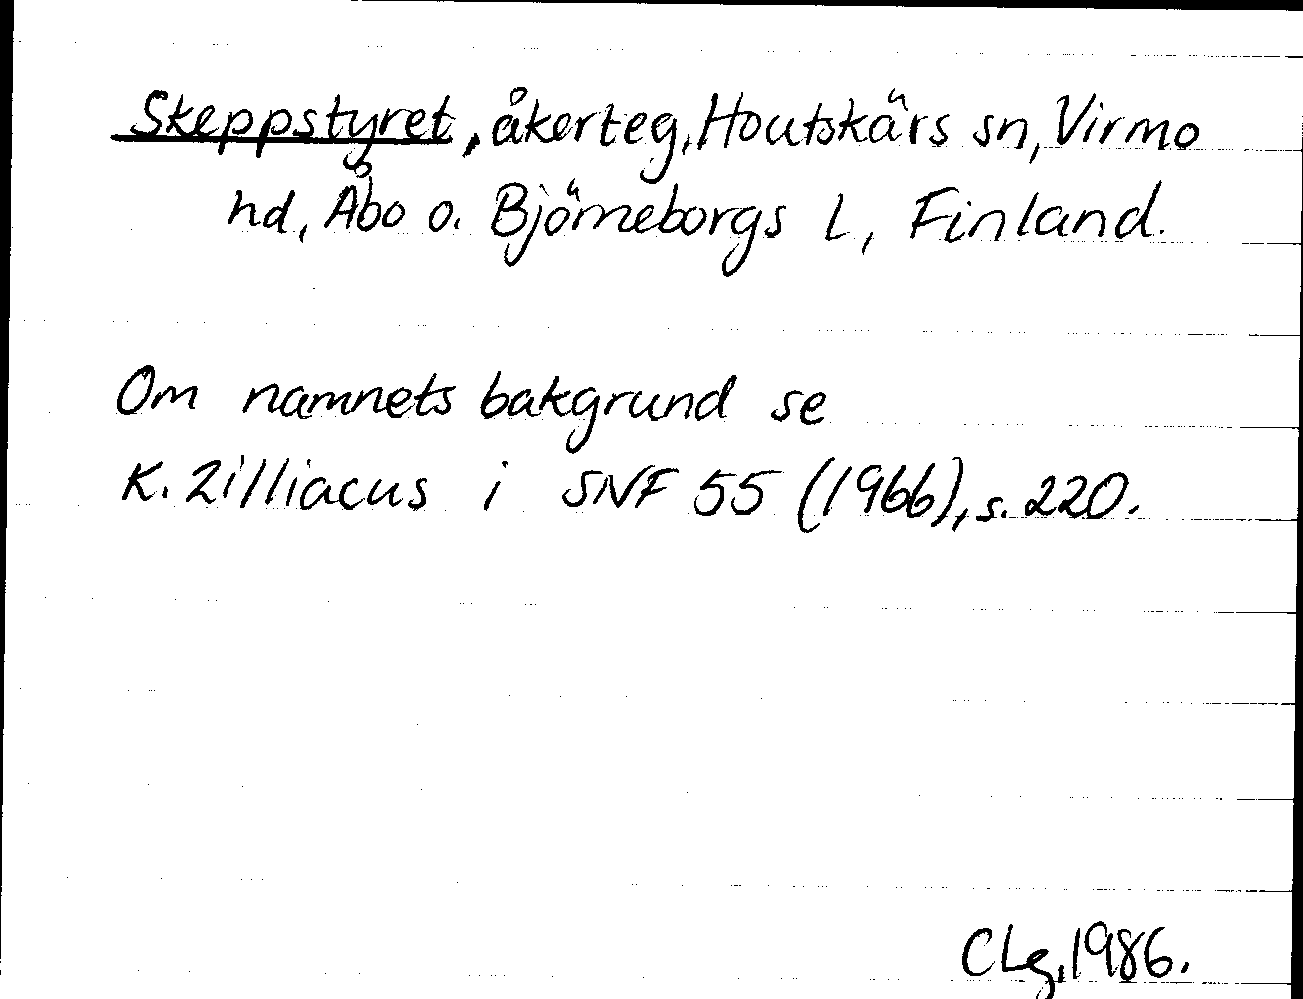 Skeppstyret, åkerteg, Houtskärs sn, Virmo
hd, Åbo o. Björneborgs L, Finland.
Om namnets bakgrund se
K. Zilliacus i SNF 55 (1966), s. 220.
CLg, 1986.